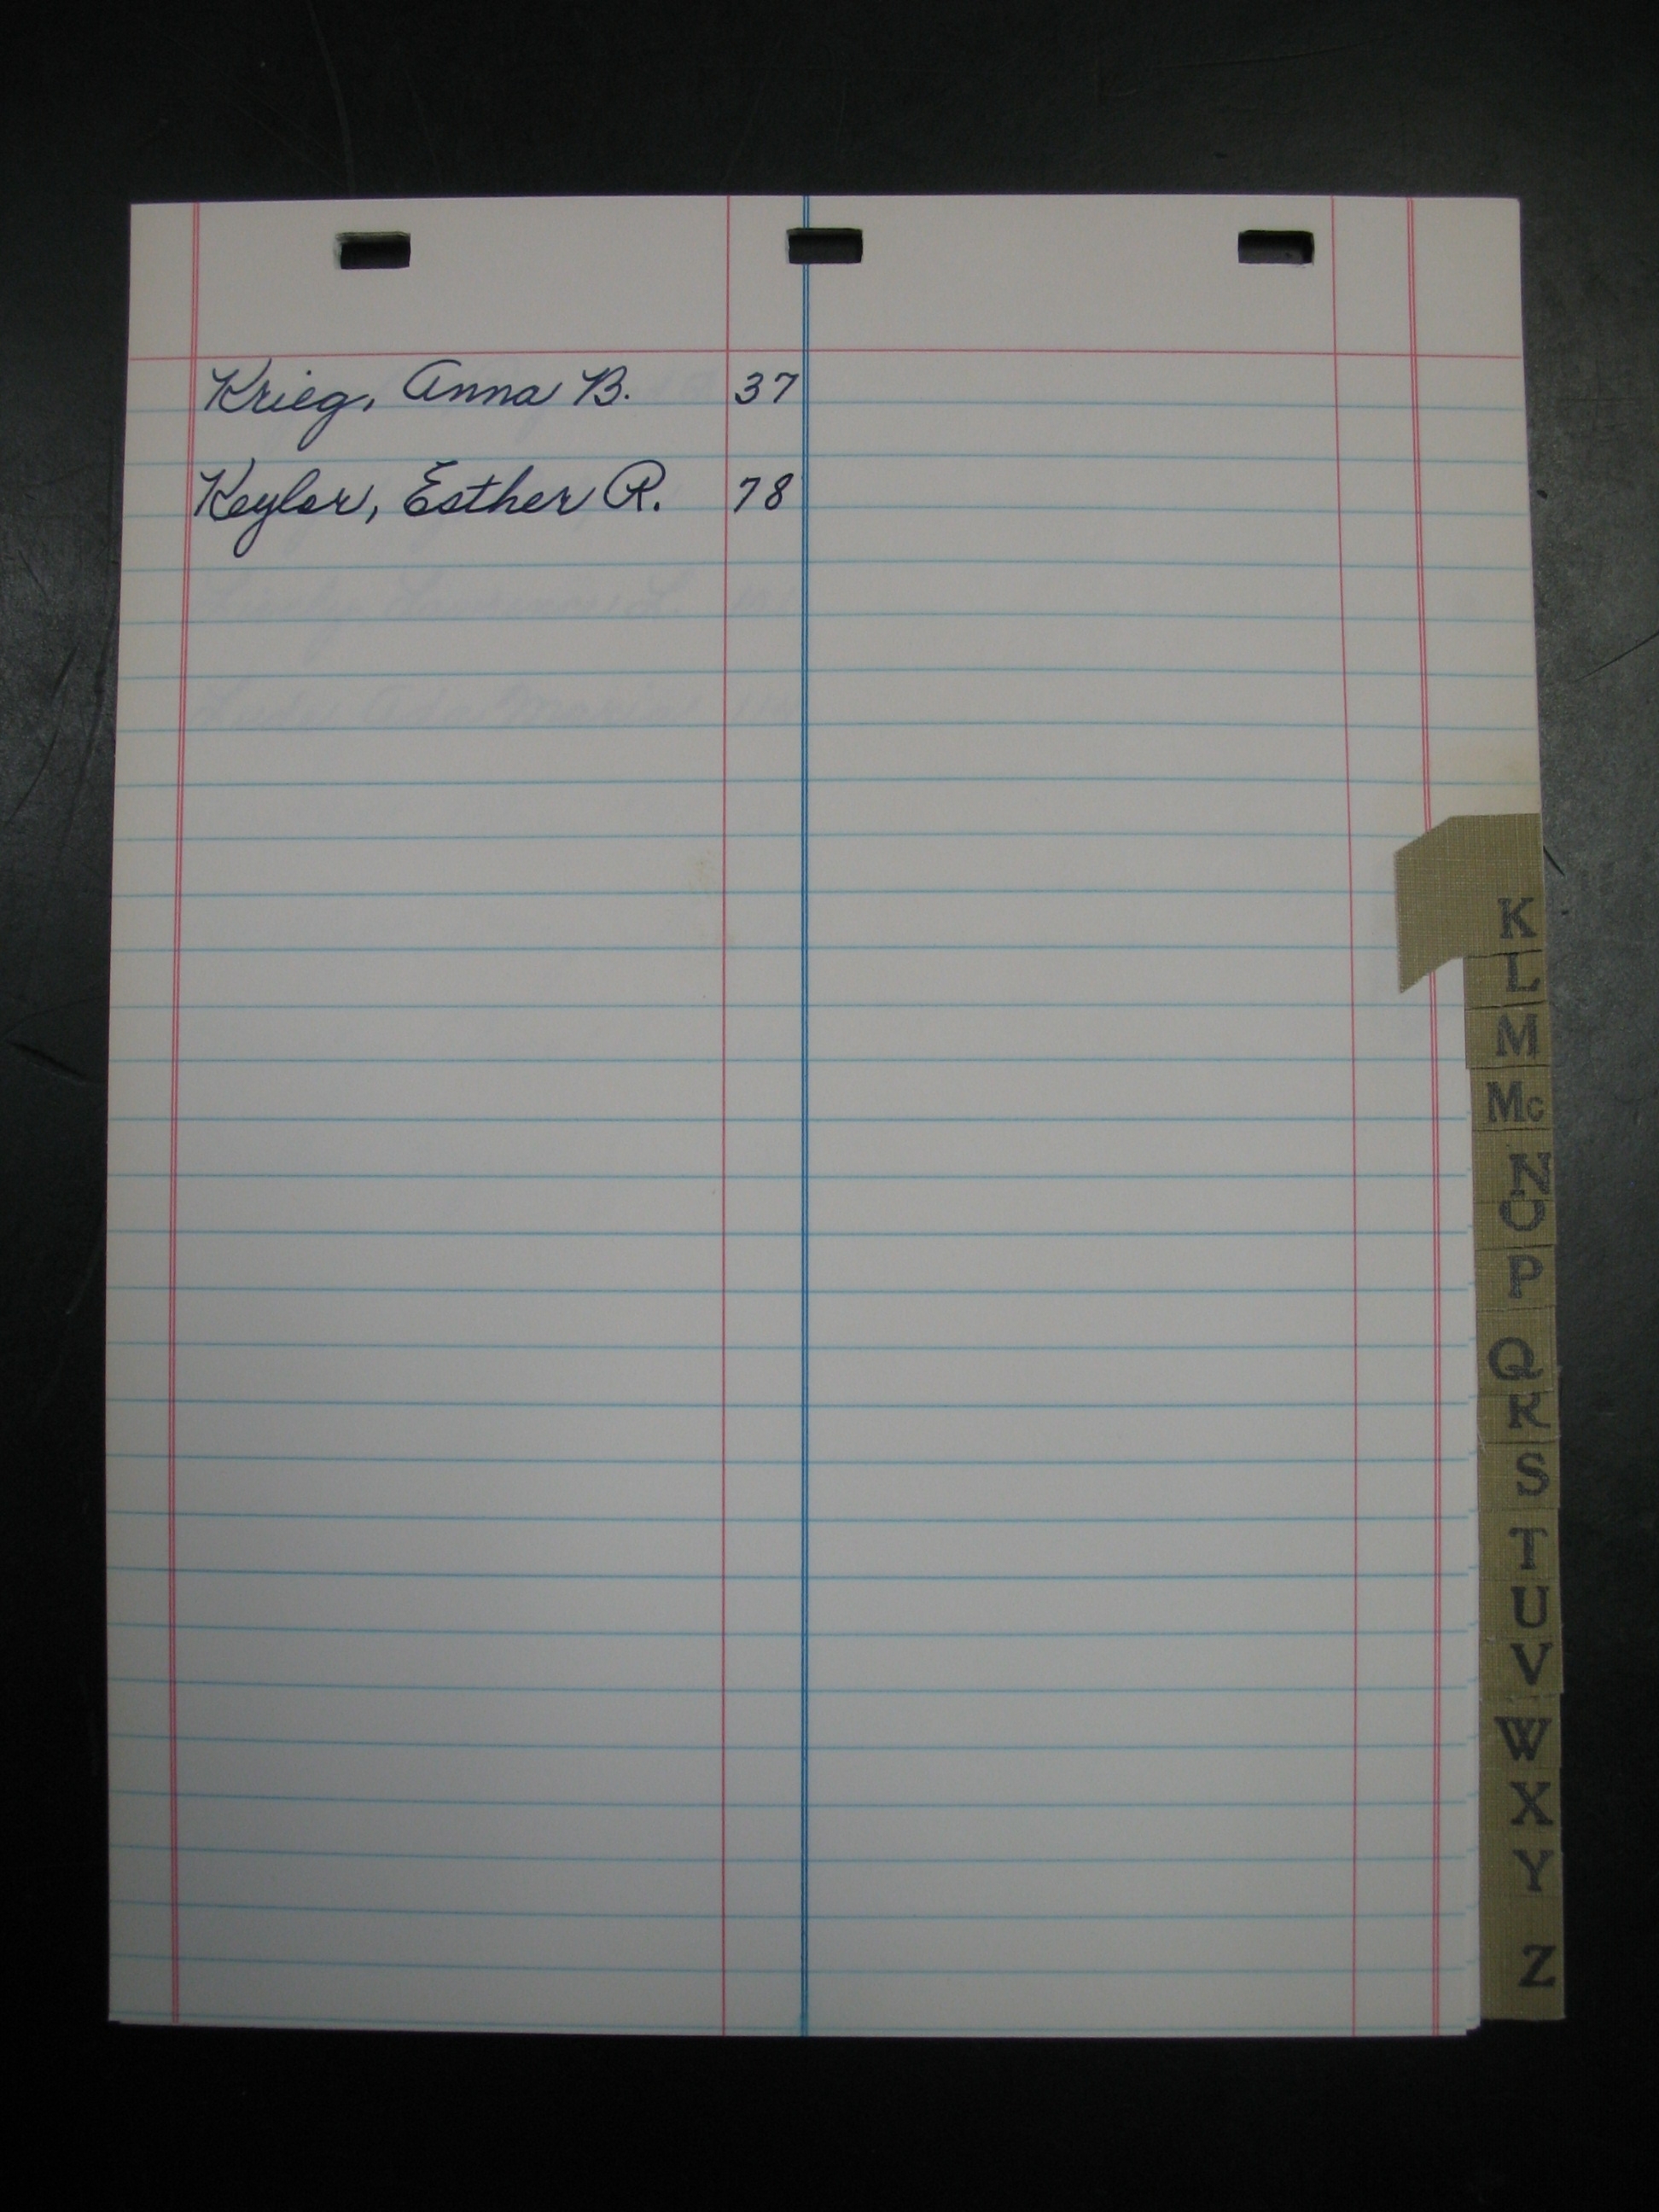 Krieg, Anna B. 37
Keylor, Esther R. 78
K
L
M
Mc
N
O
P
Q
R
S
T
U
V
W
X
Y
Z